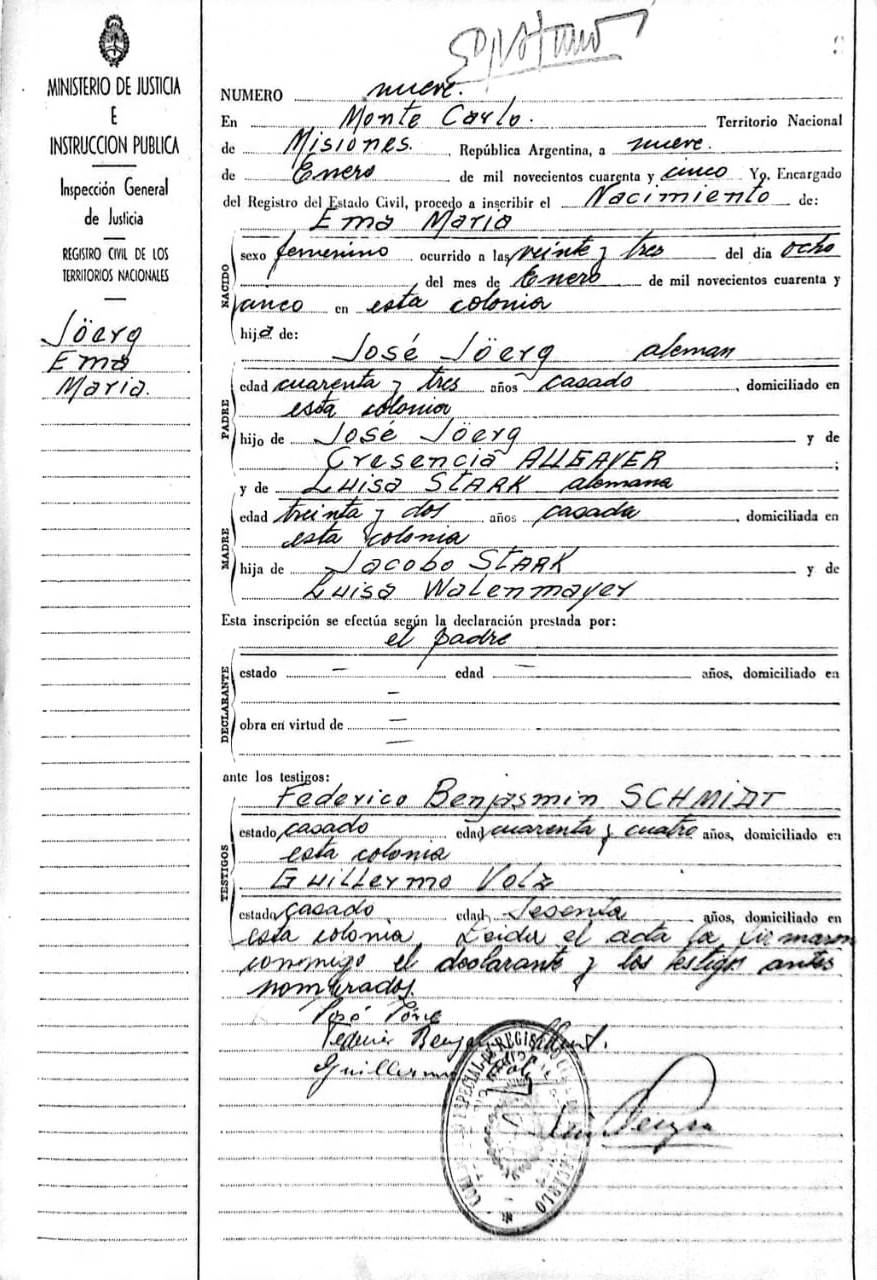 MINISTERIO DE JUSTICIA
E
INSTRUCCION PUBLICA
Inspección General
de Justicia
REGISTRO CIVIL DE LOS
TERRITORIOS NACIONALES
Jöerg
Ema
Maria.
NUMERO nueve.
En Monte Carlo. Territorio Nacional
de Misiones. República Argentina, a nueve.
de Enero de mil novecientos cuarenta y cinco Yo, Encargado
del Registro del Estado Civil, procedo a inscribir el Nacimiento de:
Ema Maria
NACIDO
sexo femenino ocurrido a las veinte y tres del día ocho
del mes de Enero de mil novecientos cuarenta y
cinco en esta colonia
hija de:
José Jöerg aleman
PADRE
edad cuarenta y tres años casado, domiciliado en
esta colonia
hijo de José Jöerg y de
Cresencia ALLGAYER;
y de Luisa STARK alemana
MADRE
edad treinta y dos años casada, domiciliada en
esta colonia
hija de Jacobo STARK y de
Luisa Walenmayer
Esta inscripción se efectúa según la declaración prestada por:
el padre
DECLARANTE
estado — edad — años, domiciliado en
—
obra en virtud de —
—
ante los testigos:
Federico Benjasmin SCHMIDT
TESTIGOS
estado casado edad cuarenta y cuatro años, domiciliado en
esta colonia
Guillermo Volz
estado casado edad sesenta años, domiciliado en
esta colonia Leida el acta la firmaron
conmigo el declarante y los testigos antes
nombrados
José Jörg
Federico Benjamin
Guillermo Volz